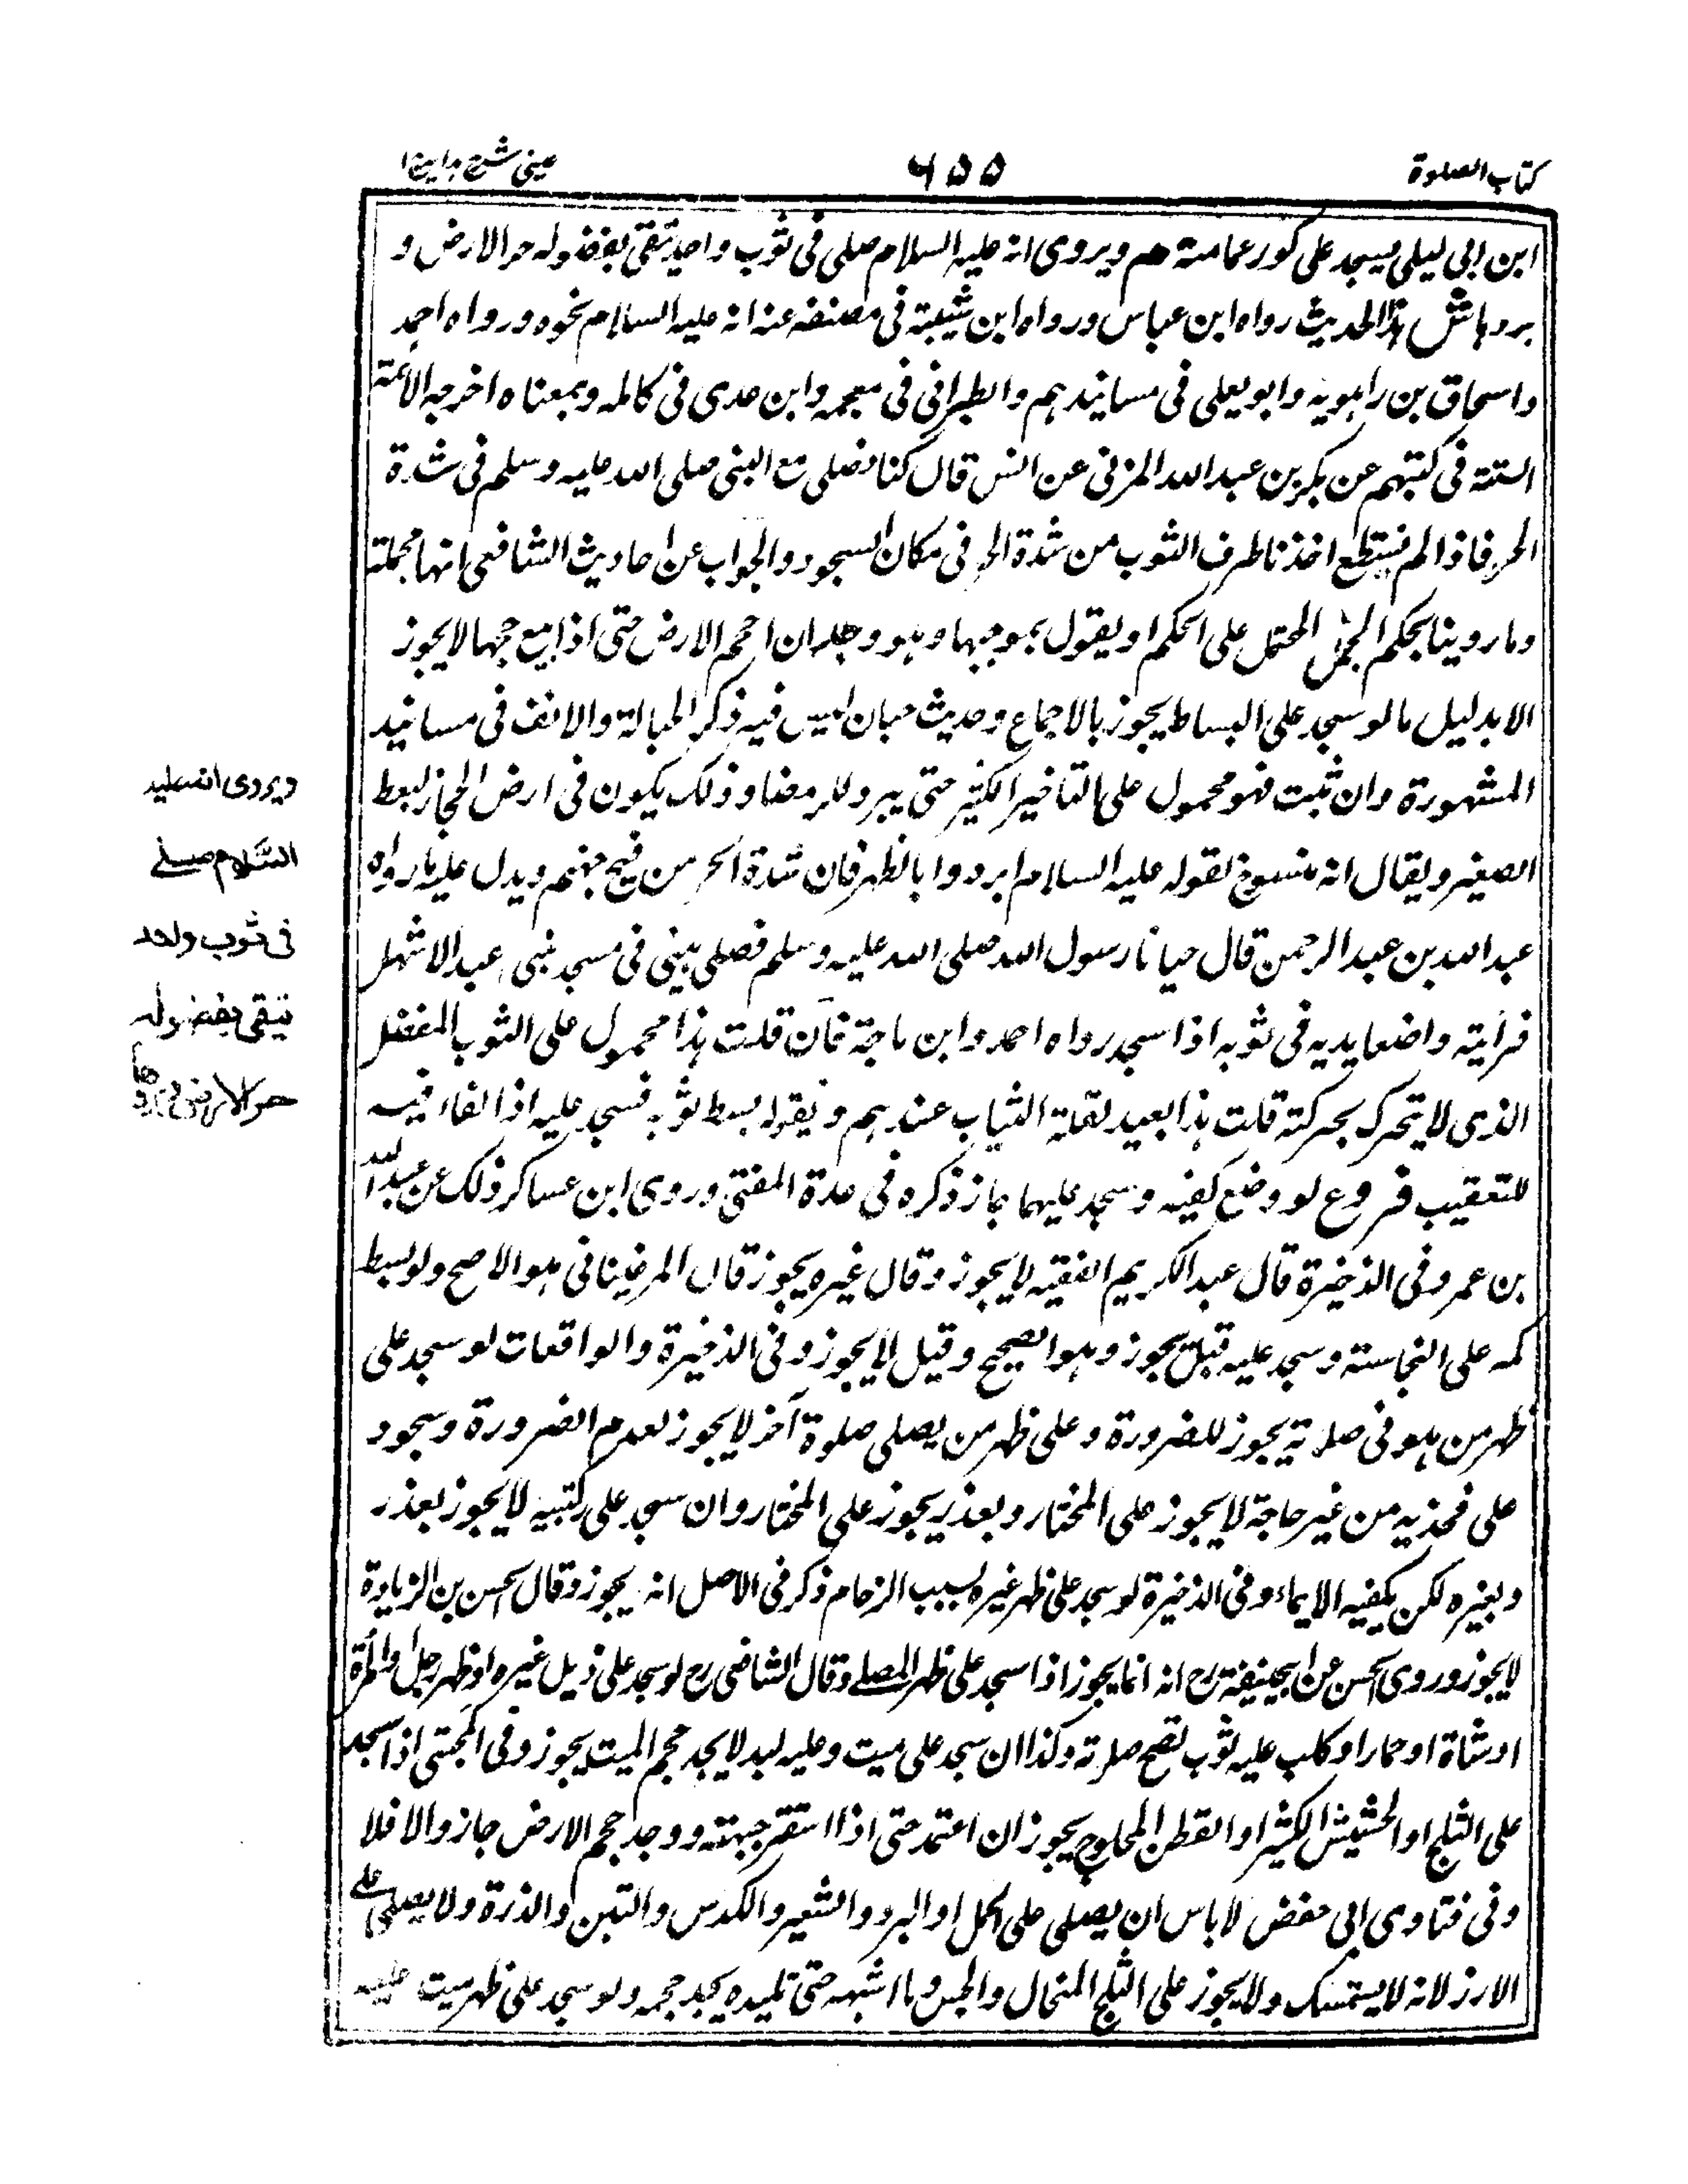 كتاب الصلوة
٦٥٥
عينى شرح هدايه ج١
ابن ابى ليلى يسجد على كور عمامته هم ويروى انه عليه السلام صلى فى ثوب واحد يتقى بفضوله حر الارض و
بردها ش هذا الحديث رواه ابن عباس ورواه ابن شيبة فى مصنفه عنه انه عليه السلام نحوه ورواه احمد
واسحاق بن راهويه وابو يعلى فى مسانيدهم والطبرانى فى معجمه وابن عدى فى كامله وبمعناه اخرجه الائمة
الستة فى كتبهم عن بكر بن عبد الله المزنى عن انس قال كنا نصلى مع النبى صلى الله عليه وسلم فى شدة
الحر فاذا لم نستطع اخذنا طرف الثوب من شدة الحر فى مكان السجود والجواب عن احاديث الشافعى انها مجملة
وما روينا بحكم المجمل المحتمل على الحكم او يقول بموجبها وهو وجدان احجم الارض حتى اذا مع حجمها لا يجوز
الا بدليل ما لو سجد على البساط يجوز بالاجماع وحديث حبان ليس فيه ذكر الجبالة والانف فى مسانيد
المشهورة وان ثبت فهو محمول على التاخير الكثير حتى يبرد الرمضا وذلك يكون فى ارض الحجاز لبعط
الصغير ويقال انه منسوخ لقوله عليه السلام ابردوا بالظهر فان شدة الحر من فيح جهنم ويدل عليه ما رواه
عبد الله بن عبد الرحمن قال جانا رسول الله صلى الله عليه وسلم فصلى بنى فى مسجد بنى عبد الاشهل
فرايته واضعا يديه فى ثوبه اذا سجد رواه احمد وابن ماجة فان قلت هذا محمول على الثوب المنفصل
الذى لا يتحرك بحركته قلت هذا بعيد لقلة الثياب عندهم ويقوله بسط ثوبه فسجد عليه اذ الفاء فيه
للتعقيب فروع لو وضع كفيه وسجد عليهما جاز ذكره فى عدة المفتى وروى ابن عساكر ذلك عن عبد الله
بن عمر وفى الذخيرة قال عبد الكريم الفقيه لا يجوز وقال غيره يجوز قال المرغينانى هو الاصح ولو بسط
كمه على النجاسة وسجد عليه قيل يجوز وهو الصحيح وقيل لا يجوز وفى الذخيرة والواقعات لو سجد على
ظهر من هو فى صلاته يجوز للضرورة وعلى ظهر من يصلى صلوة آخر لا يجوز لعدم الضرورة وسجود
على فخذيه من غير حاجة لا يجوز على المختار وبعذر يجوز على المختار وان سجد على ركبتيه لا يجوز بعذر
وبغيره لكن يكفيه الايماء وفى الذخيرة لو سجد على ظهر غيره بسبب الزحام ذكر فى الاصل انه يجوز وقال الحسن بن الزيادة
لا يجوز وروى الحسن عن ابيحنيفة رح انه انما يجوز اذا سجد على ظهر المصلى وقال الشافعى رح لو سجد على ذيل غيره او ظهر رجل او امرأة
او شاة او حمار او كلب عليه ثوب تصح صلاته وكذا ان سجد على ميت وعليه لبد لا يجد حجم الميت يجوز وفى المجتبى اذا سجد
على الثلج او الحشيش الكثير او القطن المحلوج يجوز ان اعتمد حتى اذا استقر جبهته ووجد حجم الارض جاز والا فلا
وفى فتاوى ابى حفض لا باس ان يصلى على الجمل او البر والشعير والكدس والتبن والذرة ولا يصلى على
الارز لانه لا يستمسك ولا يجوز على الثلج المنحال والجس وما اشبهه حتى تلبده يجد حجمه ولو سجد على ظهر ميت عليه
ويروى انه عليه
السّلام صلے
فى ثوب واحد
يتقى بفضوله
حر الارض وبردها